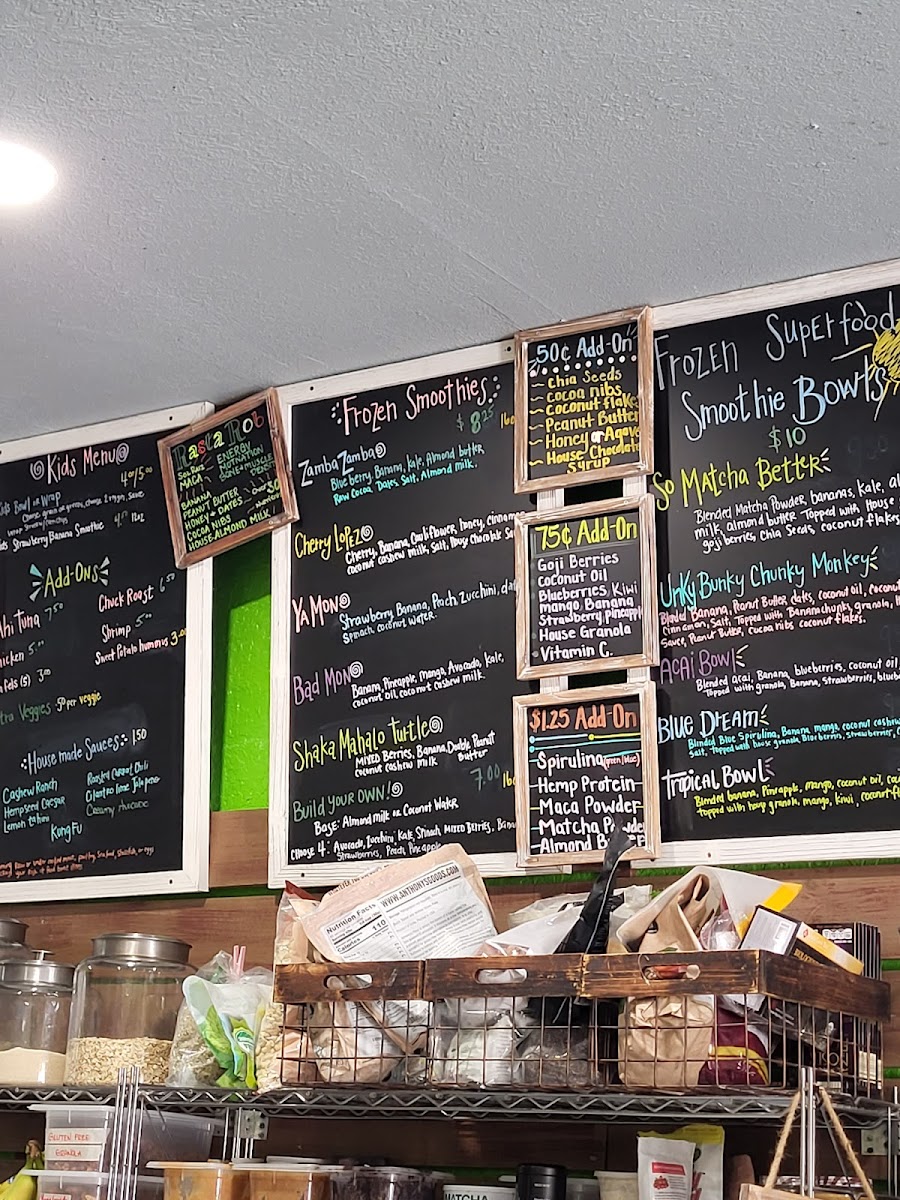 Kids Menu
4oz/5.00
Kids Bowl or Wrap
Strawberry Banana Smoothie
12oz
Add-Ons
Ahi Tuna 7.50
Chuck Roast 6.50
Chicken 5.00
Shrimp 5.00
Sweet Potato hummus 3.00
Extra Veggies .50 per veggie
House made Sauces 1.50
Cashew Ranch
Hempseed Caesar
Lemon tahini
Roasted Carrot Chili
Cilantro lime Jalapeno
Creamy Avocado
Kung Fu
Rasta Rob
Sea Moss
MACA
ENERGY
NUTRITION
BANANA
PEANUT BUTTER
HONEY + DATES
COCOA NIBS
HOUSE ALMOND MILK!
Frozen Smoothies
$8.25
Zamba Zamba
Blueberry, Banana, Kale, Almond butter,
Raw Cocoa, Dates, Salt, Almond milk.
Cherry Lopez
Cherry, Banana, Cauliflower, honey, cinnamon
coconut cashew milk, Salt, House chocolate
Ya Mon
Strawberry, Banana, Peach, Zucchini,
Spinach, coconut water.
Bad Mon
Banana, Pineapple, Mango, Avocado, Kale,
coconut oil, coconut cashew milk.
Shaka Mahalo Turtle
Mixed Berries, Banana, Double Peanut
Butter
coconut cashew milk
7.00
Build your own!
Base: Almond milk or Coconut Water
Chose 4: Avocado, Zocchini, Kale, Spinach, Mixed Berries,
Strawberries, Peach, Pineapple
50¢ Add-On
~ Chia Seeds
~ cocoa nibs
~ coconut flakes
~ Peanut Butter
~ Honey or Agave
~ House Chocolate
Syrup
75¢ Add-On
Goji Berries
coconut Oil
Blueberries, Kiwi
mango, Banana
Strawberry, pineapple
House Granola
Vitamin C.
$1.25 Add-On
-Spirulina (green/blue)
-Hemp Protein
-Maca Powder
-Matcha Powder
-Almond Butter
Frozen Superfood
Smoothie Bowls
$10
So Matcha Better
Blended Matcha Powder, bananas, kale,
milk, almond butter. Topped with House
goji berries, Chia Seeds, coconut flakes
Unky Bunky Chunky Monkey
Blended Banana, Peanut Butter, dates, coconut oil,
Cinnamon, Salt, Topped with Banana chunks, granola,
Sauce, Peanut Butter, cocoa nibs coconut flakes.
Acai Bowl
Blended acai, Banana, blueberries, coconut oil,
Topped with granola, Banana, strawberries,
Blue Dream
Blended Blue Spirulina, Banana, mango, coconut cashew
Salt, topped with house granola, Blueberries, strawberries,
Tropical Bowl
Blended banana, Pineapple, mango, coconut oil,
topped with house granola, mango, kiwi, coconut
WWW.ANTHONYSGOODS.COM
Nutrition Facts
Calories 110
GLUTEN FREE
MATCHA